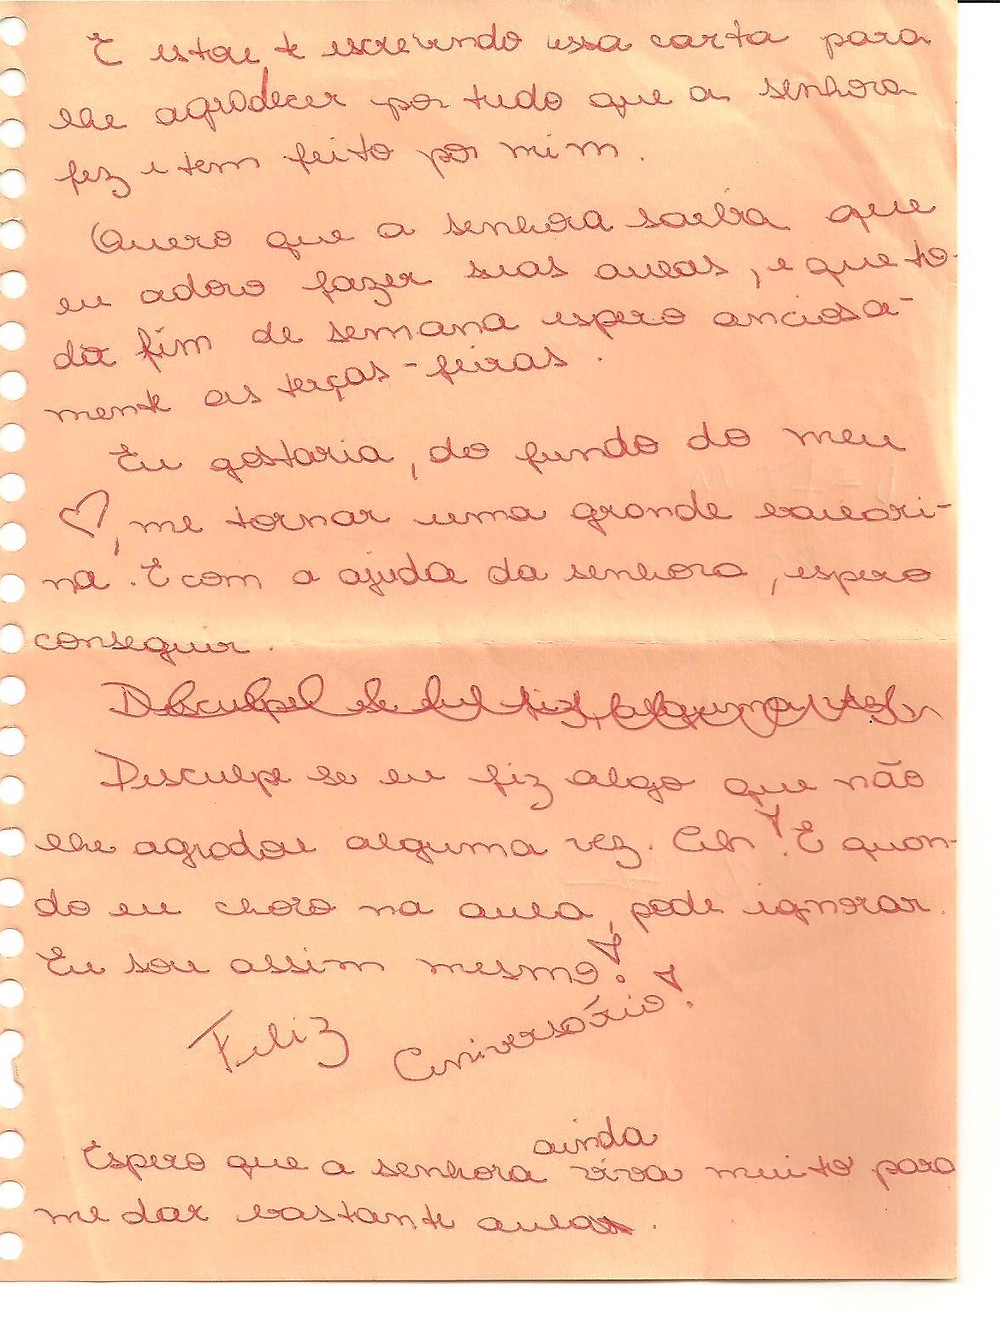 E estou te escrevendo essa carta para
lhe agradecer por tudo que a senhora
fez e tem feito por mim.
Quero que a senhora saiba que
eu adoro fazer suas aulas, e que to-
do fim de semana espero anciosa-
mente as terças-feiras.
Eu gostaria, do fundo do meu
♡, me tornar uma grande bailari-
na! E com a ajuda da senhora, espero
conseguir.
Desculpe se eu fiz alguma
Disculpe se eu fiz algo que não
lhe agradou alguma vez. Ah! E quan-
do eu choro na aula, pode ignorar.
Eu sou assim mesmo!
Feliz Aniversário!
Espero que a senhora ainda viva muito para
me dar bastante aulas.